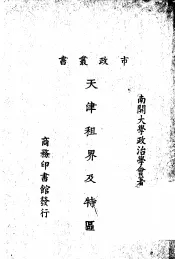 市政叢書
南開大學政治學會著
天津租界及特區
商務印書館發行